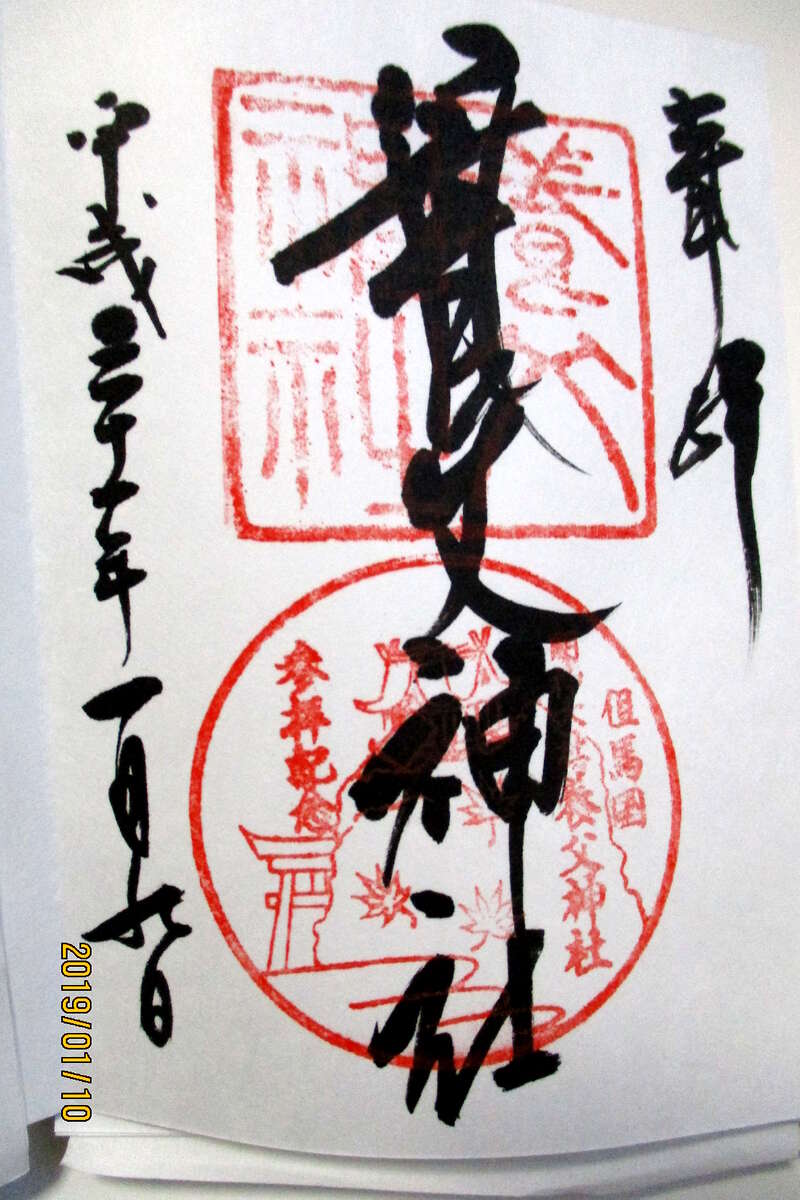 奉拝
養父神社
養父神社
但馬国
養父神社
参拝記念
平成三十一年一月九日
2019/01/10